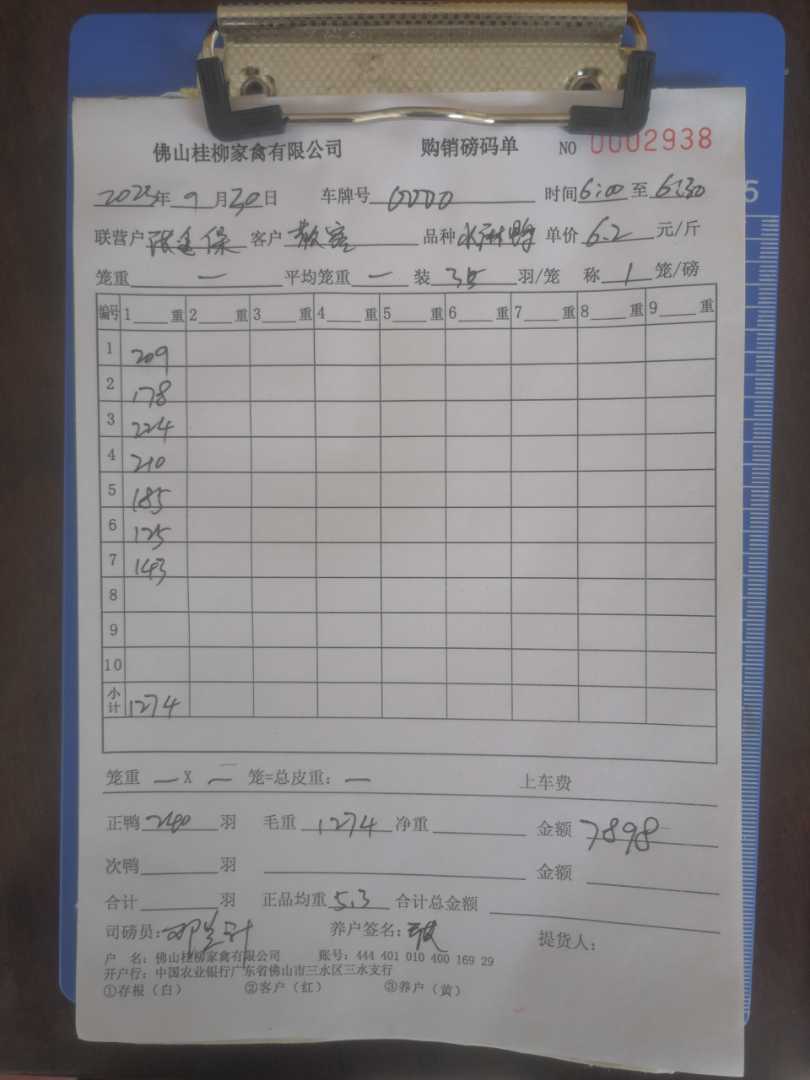 佛山桂柳家禽有限公司 购销磅码单 NO 0002938
2025年 9 月30日 车牌号 0000 时间6:00至6:30
联营户 客户 散客 品种 水洲鸭 单价 6.2 元/斤
笼重 一 平均笼重 一 装 35 羽/笼 称 1 笼/磅
编号 1 重 2 重 3 重 4 重 5 重 6 重 7 重 8 重 9 重
1 209
2 178
3 224
4 210
5 185
6 125
7 143
8
9
10
小计 1274
笼重 一 X 一 笼=总皮重: 一 上车费
正鸭 240 羽 毛重 1274 净重 金额 7898
次鸭 羽 金额
合计 羽 正品均重 5.3 合计总金额
司磅员: 养户签名: 提货人:
户 名: 佛山桂柳家禽有限公司 账号: 444 401 010 400 169 29
开户行: 中国农业银行广东省佛山市三水区三水支行
①存根(白) ②客户(红) ③养户(黄)